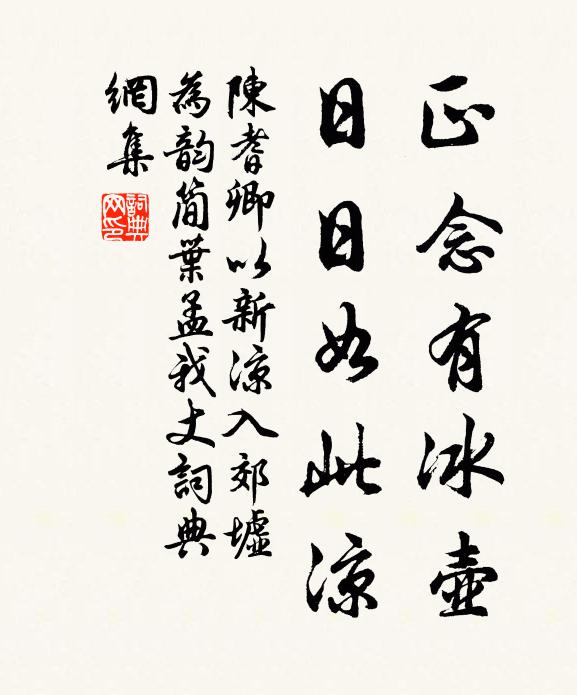 正念有冰壺
日日如此涼
陳耆卿以新涼入郊墟
為韵簡葉孟我丈詞典
網集
詞典网印